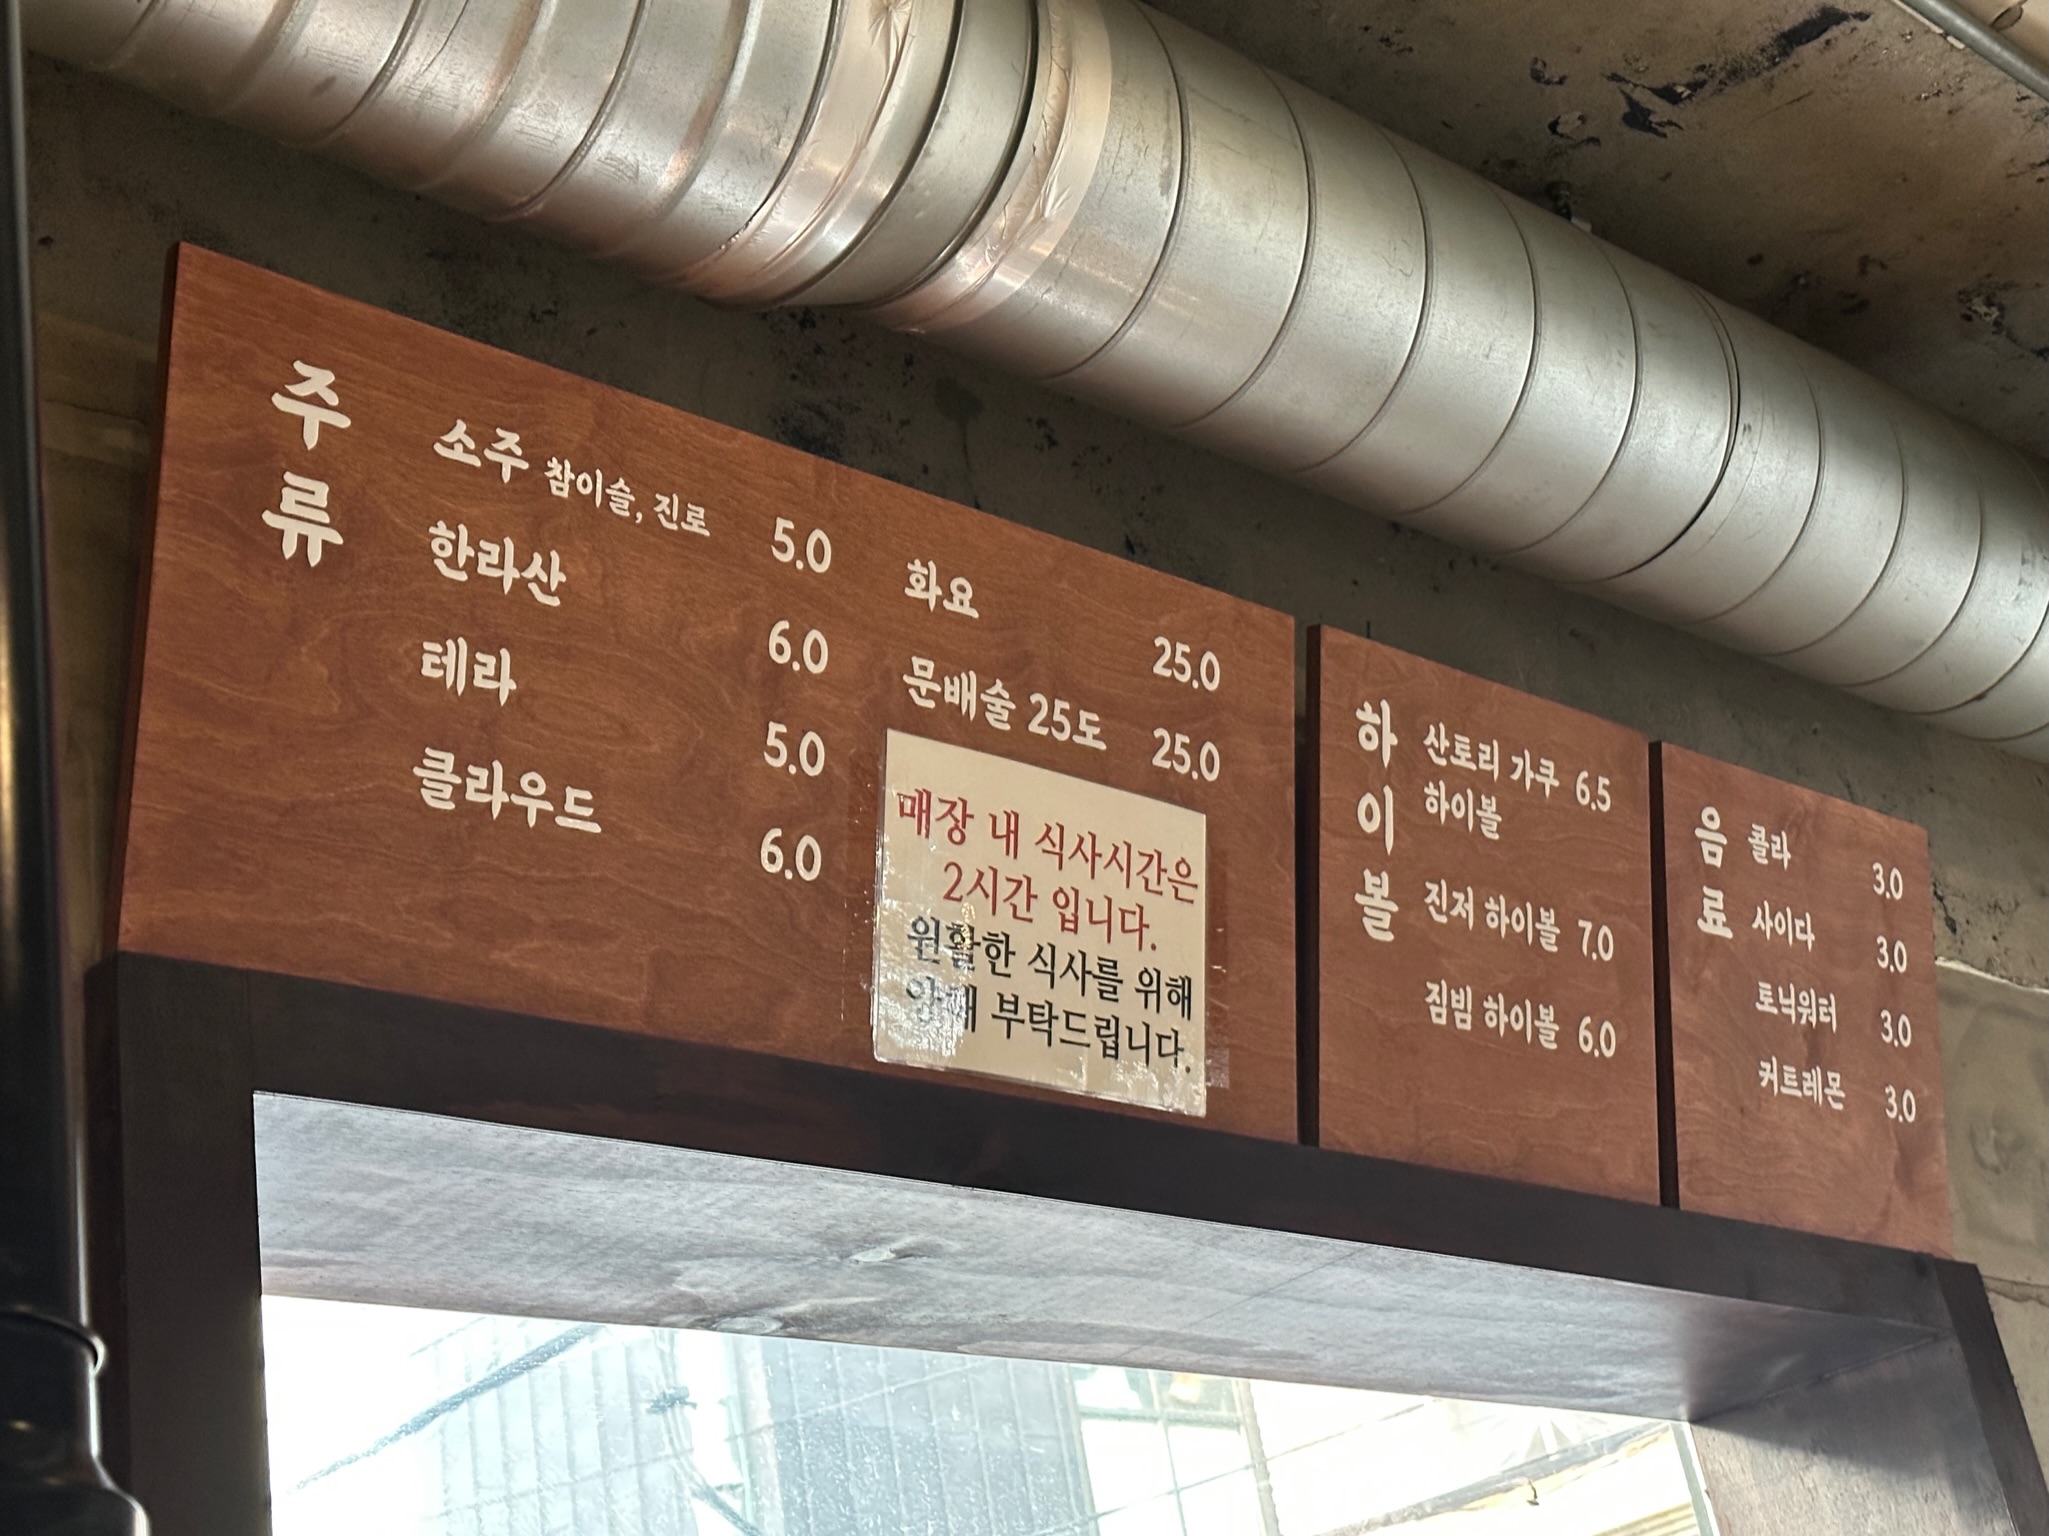 주류
소주 참이슬, 진로 5.0
한라산 6.0
테라 5.0
클라우드 6.0
화요 25.0
문배술 25도 25.0
매장 내 식사시간은
2시간 입니다.
원활한 식사를 위해
양해 부탁드립니다.
하이볼
산토리 가쿠 6.5
하이볼
진저 하이볼 7.0
짐빔 하이볼 6.0
음료
콜라 3.0
사이다 3.0
토닉워터 3.0
커트레몬 3.0